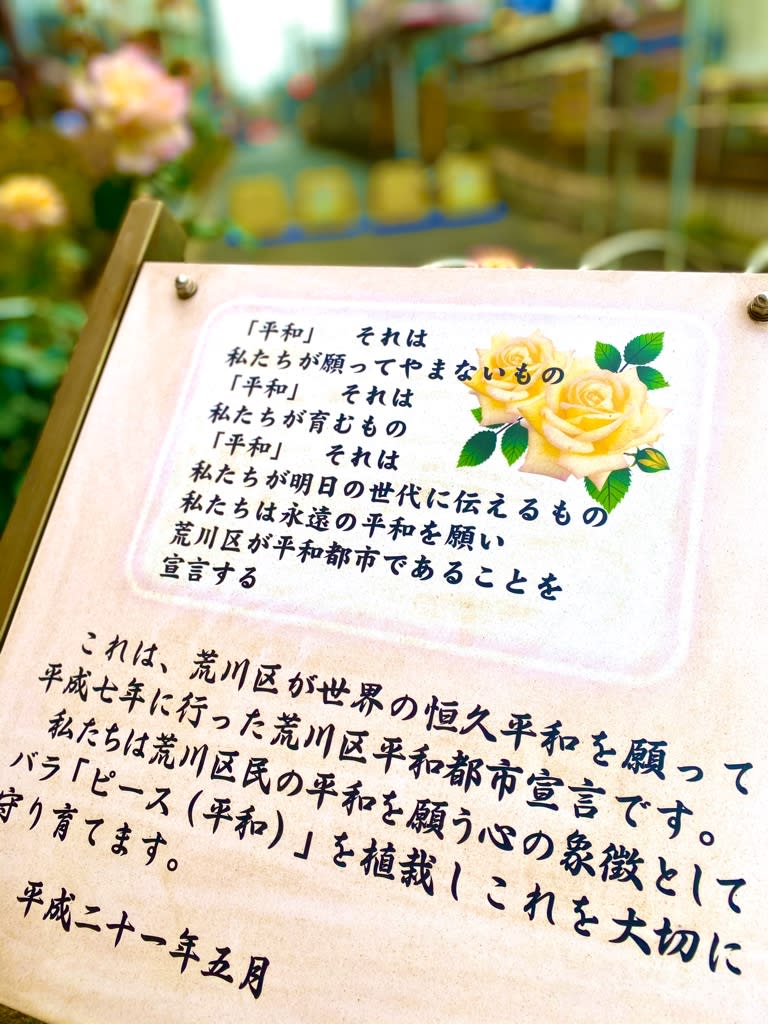 「平和」　それは
私たちが願ってやまないもの
「平和」　それは
私たちが育むもの
「平和」　それは
私たちが明日の世代に伝えるもの
私たちは永遠の平和を願い
荒川区が平和都市であることを
宣言する
これは、荒川区が世界の恒久平和を願って
平成七年に行った荒川区平和都市宣言です。
私たちは荒川区民の平和を願う心の象徴として
バラ「ピース（平和）」を植栽しこれを大切に
守り育てます。
平成二十一年五月